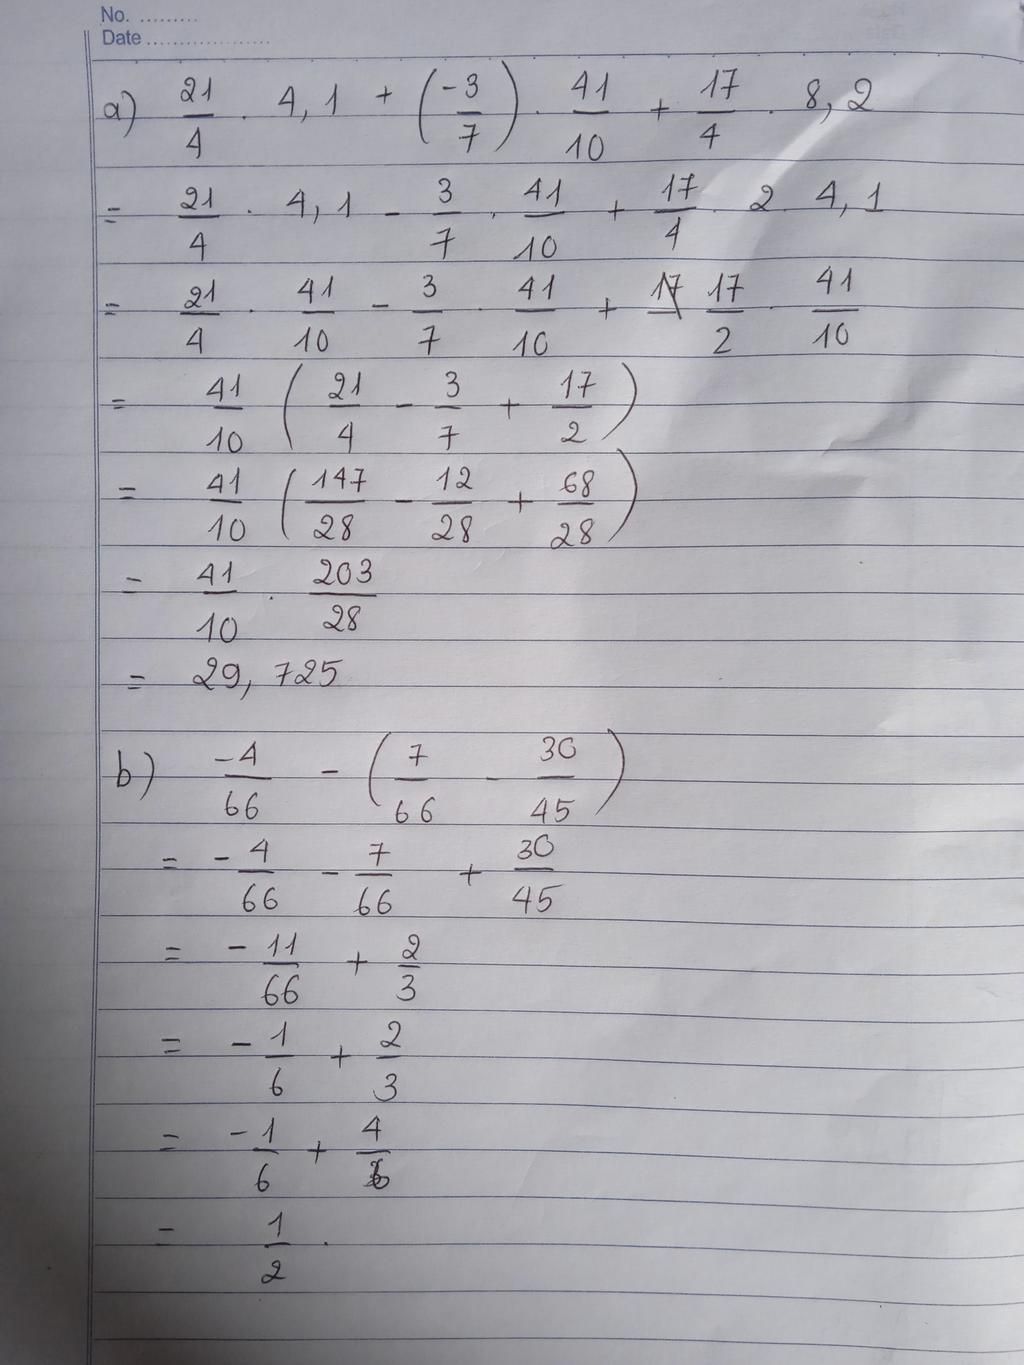 No. .........
Date ...................
a) 21/4 . 4,1 + (-3/7) . 41/10 + 17/4 . 8,2
= 21/4 . 4,1 - 3/7 . 41/10 + 17/4 . 2 4,1
= 21/4 . 41/10 - 3/7 . 41/10 + 17/2 . 41/10
= 41/10 (21/4 - 3/7 + 17/2)
= 41/10 (147/28 - 12/28 + 68/28)
= 41/10 . 203/28
= 29,725
b) -4/66 - (7/66 - 30/45)
= -4/66 - 7/66 + 30/45
= -11/66 + 2/3
= -1/6 + 2/3
= -1/6 + 4/6
= 1/2 .